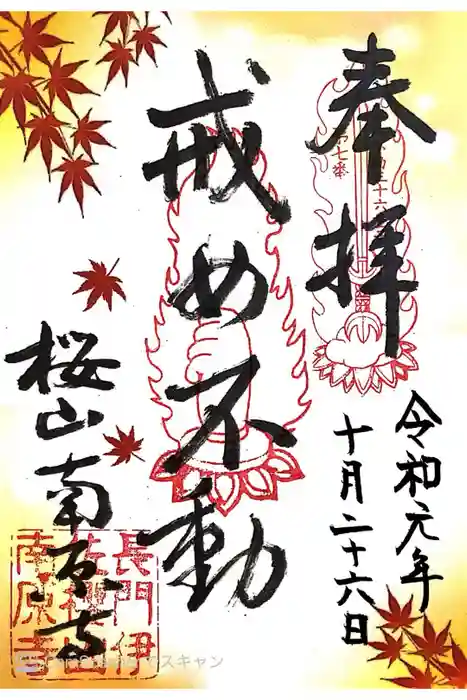 奉拝
第七番
令和元年
十月二十六日
戒め不動
桜山南原寺
長門伊
佐桜山
南原寺
でスキャン